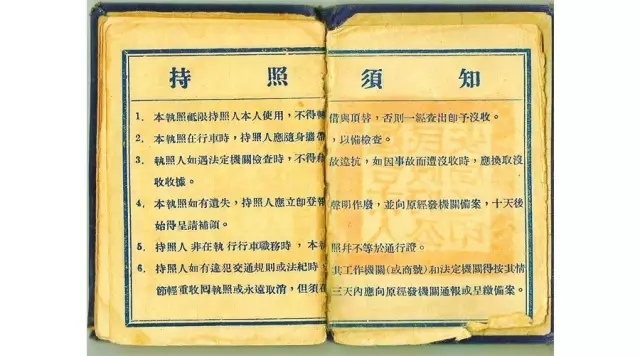 持照須知
1. 本執照祗限持照人本人使用，不得 借與頂替，否則一經查出即予沒收。
2. 本執照在行車時，持照人應隨身攜帶，以備檢查。
3. 執照人如遇法定機關檢查時，不得 故違抗，如因事故而遭沒收時，應換取沒
收收據。
4. 本執照如有遺失，持照人應立卽登報聲明作廢，並向原經發機關備案，十天後
始得呈請補領。
5. 持照人非在執行行車職務時，本 照幷不等於通行證。
6. 持照人如有違犯交通規則或法紀時 其工作機關(或商號)和法定機關得按其情
節輕重收囘執照或永遠取消，但須在三天內應向原經發機關通報或呈繳備案。